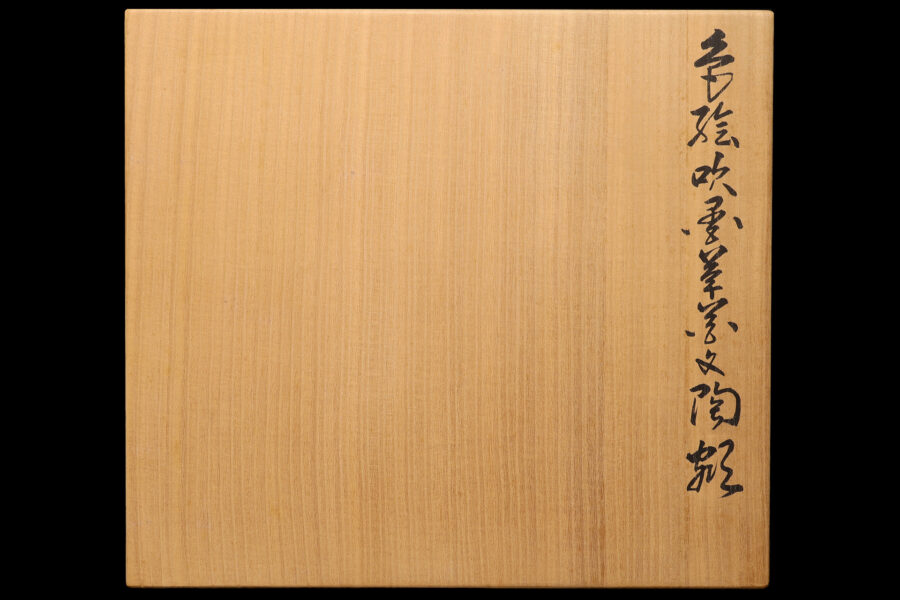 色絵吹墨草花文陶額